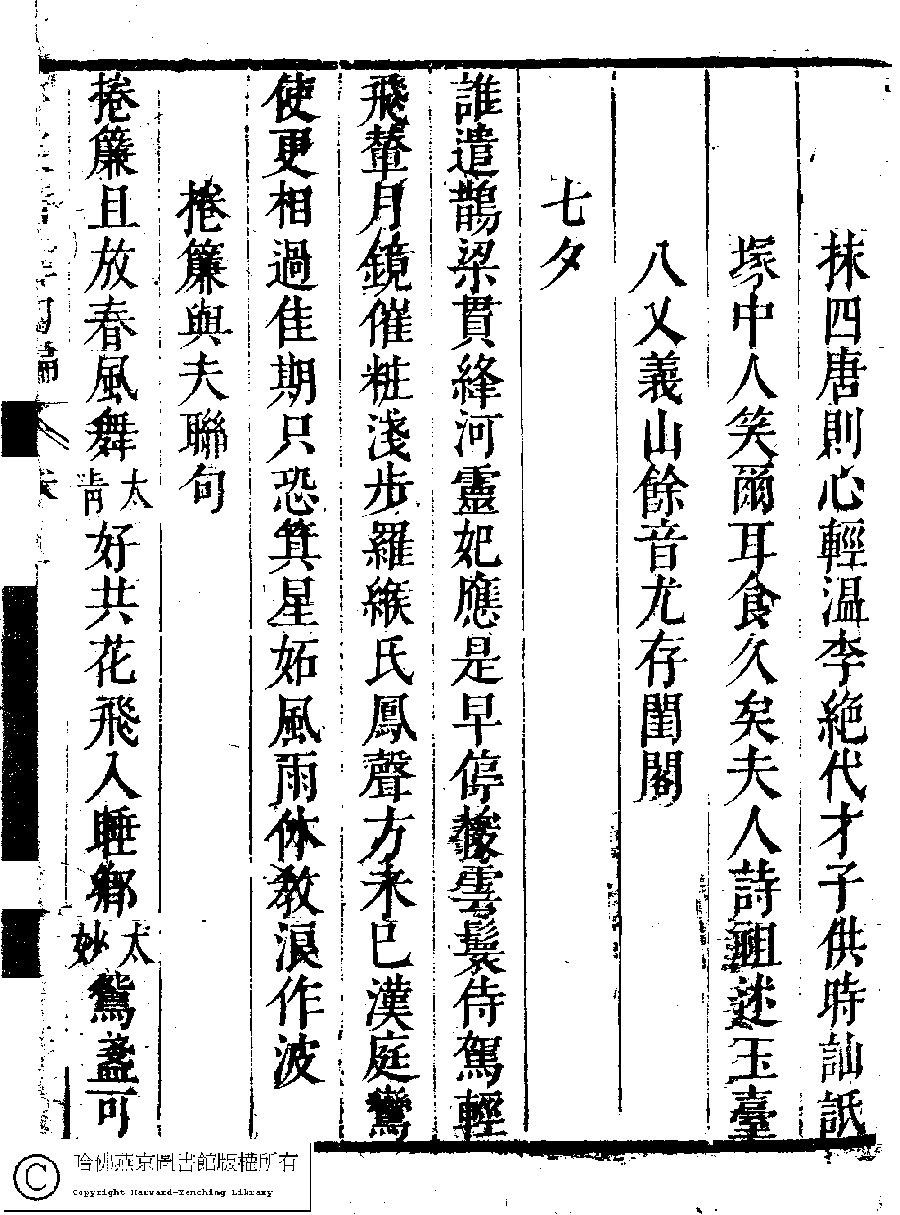 抹四唐則心輕温李絶代才子供時訕詆
塚中人笑爾耳食久矣夫人詩祖述玉臺
八乂義山餘音尤存閨閣
七夕
誰遣鵲梁貫絳河靈妃應是早停梭雲鬟侍駕輕
飛輦月鏡催粧淺步羅緱氏鳳聲方未巳漢庭鸞
使更相過佳期只恐箕星妬風雨休教浪作波
捲簾與夫聯句
捲簾且放春風舞太青好共花飛入睡鄉太妙鴛盞可
哈佛燕京圖書館版權所有
Copyright Harvard-Yenching Library